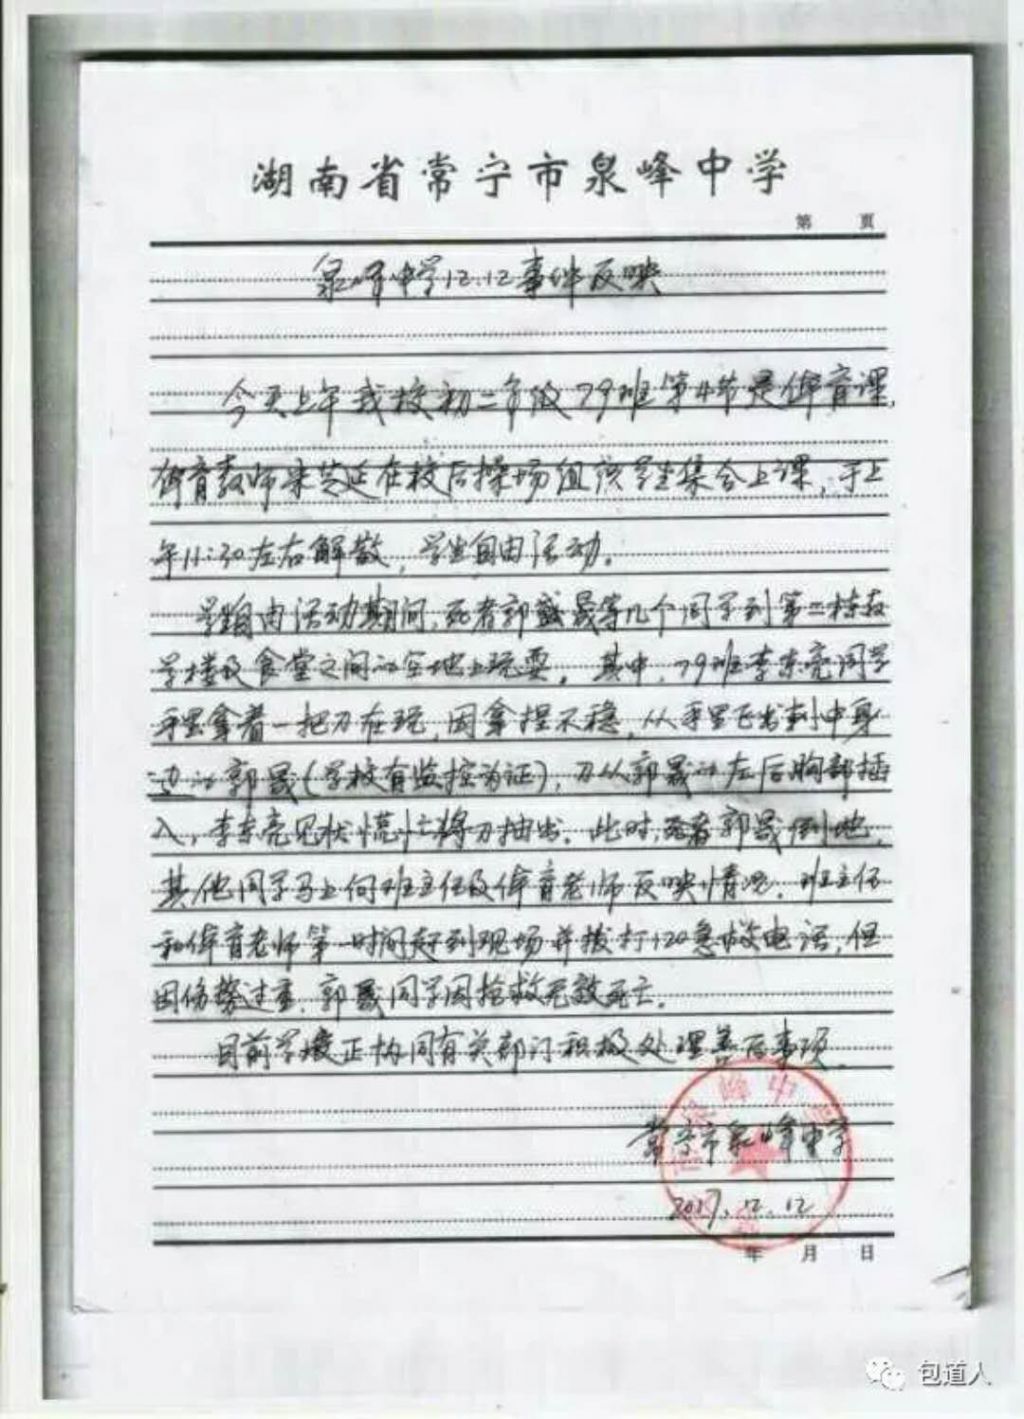 湖南省常宁市泉峰中学
第 页
泉峰中学12.12事件反映
今天上午我校初二年级79班第4节是体育课,
体育教师宋芸廷在校后操场组织学生集合上课,于上
午11:30左右解散,学生自由活动。
学生自由活动期间,死者郭盛晟等几个同学到第二栋教
学楼及食堂之间的空地上玩耍。其中,79班李东亮同学
手里拿着一把刀在玩,因拿捏不稳,从手里飞出刺中身
边的郭晟(学校有监控为证),刀从郭晟的左后胸部插
入,李东亮见状慌忙将刀抽出。此时,死者郭晟倒地,
其他同学马上向班主任及体育老师反映情况。班主任
和体育老师第一时间赶到现场并拨打120急救电话,但
因伤势过重,郭晟同学因抢救无效死亡。
目前学校正协同有关部门积极处理善后事项。
常宁市泉峰中学
2017.12.12
年 月 日
包道人